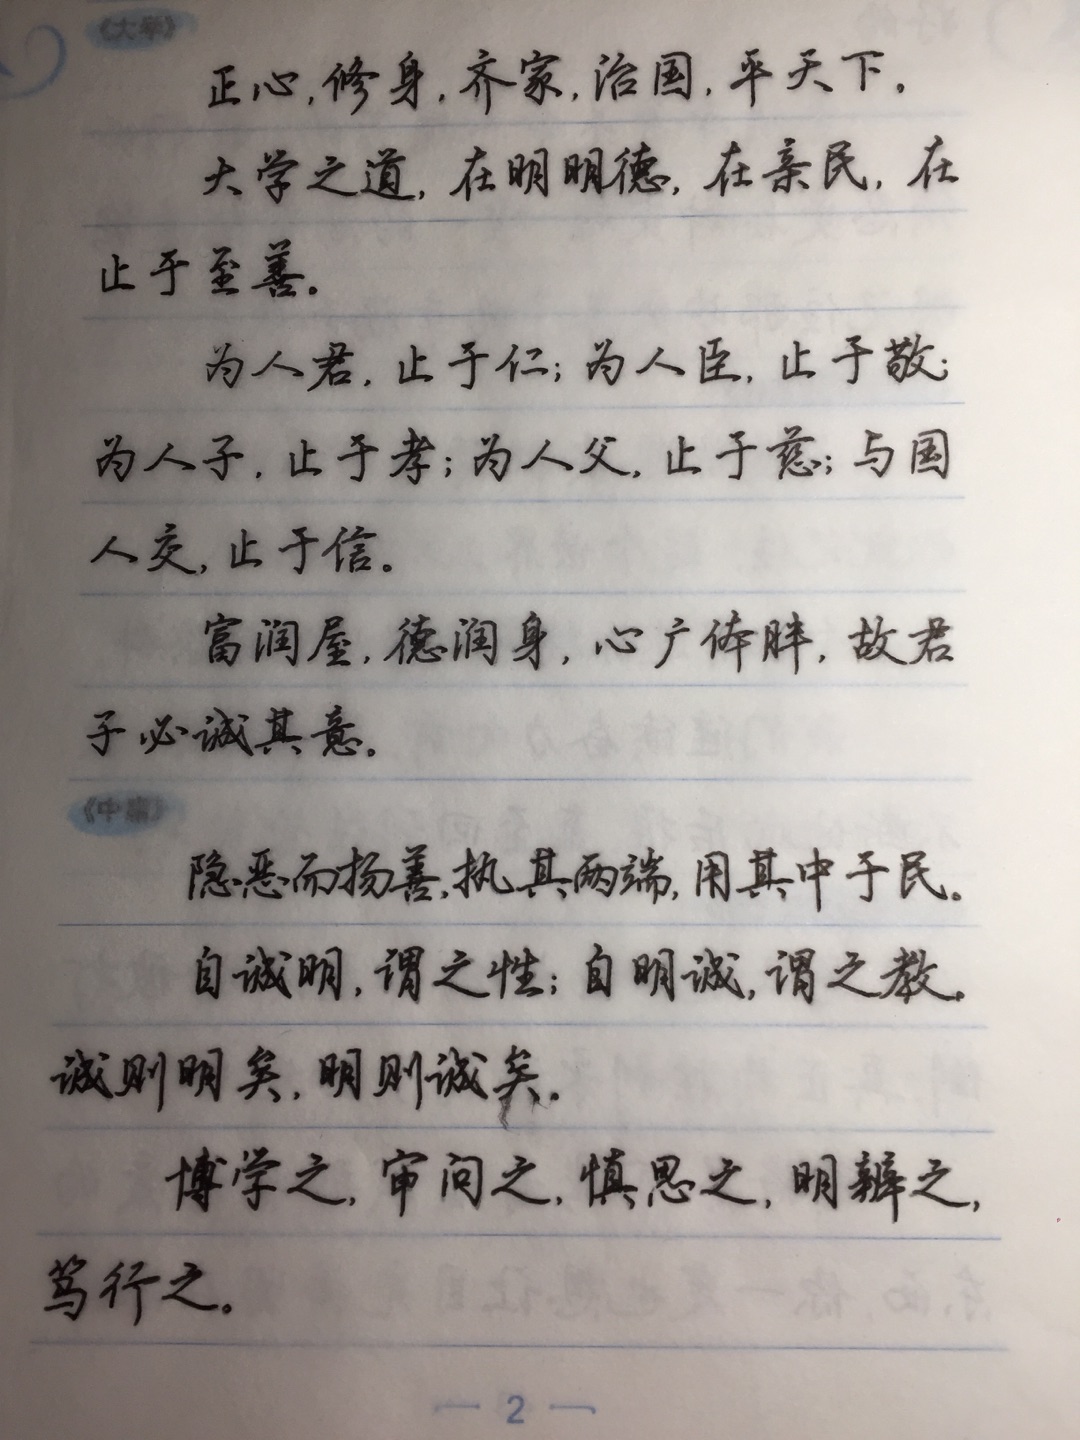 《大学》
正心,修身,齐家,治国,平天下。
大学之道,在明明德,在亲民,在
止于至善。
为人君,止于仁;为人臣,止于敬;
为人子,止于孝;为人父,止于慈;与国
人交,止于信。
富润屋,德润身,心广体胖,故君
子必诚其意。
《中庸》
隐恶而扬善,执其两端,用其中于民。
自诚明,谓之性;自明诚,谓之教。
诚则明矣,明则诚矣。
博学之,审问之,慎思之,明辨之,
笃行之。
2